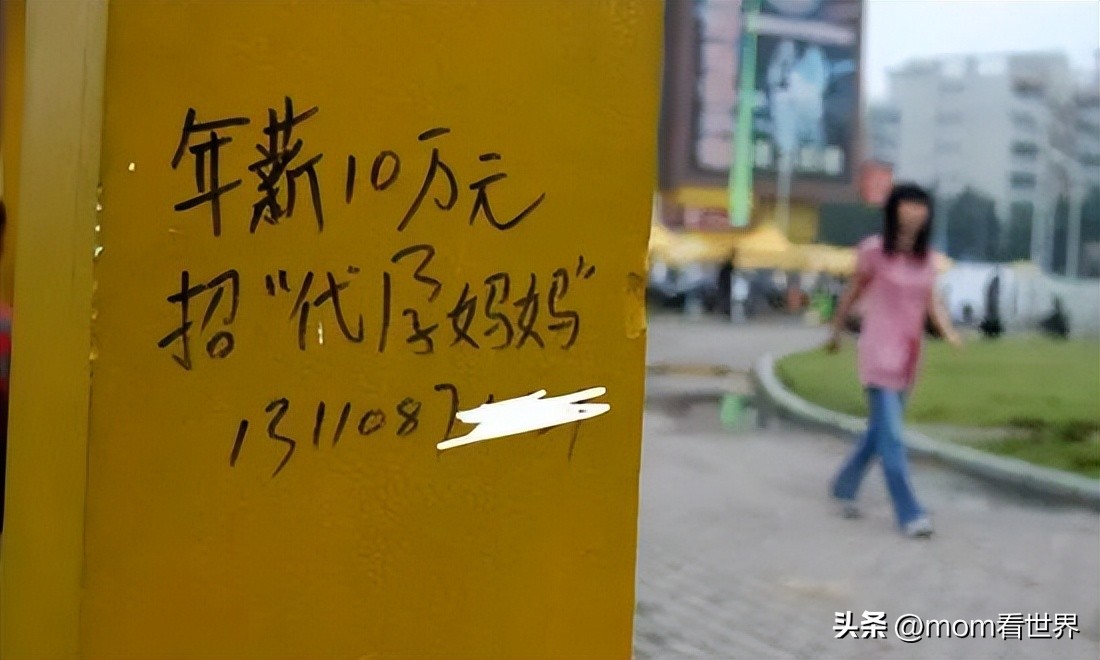 年薪10万元
招“代孕妈妈”
1311087
头条 @mom看世界